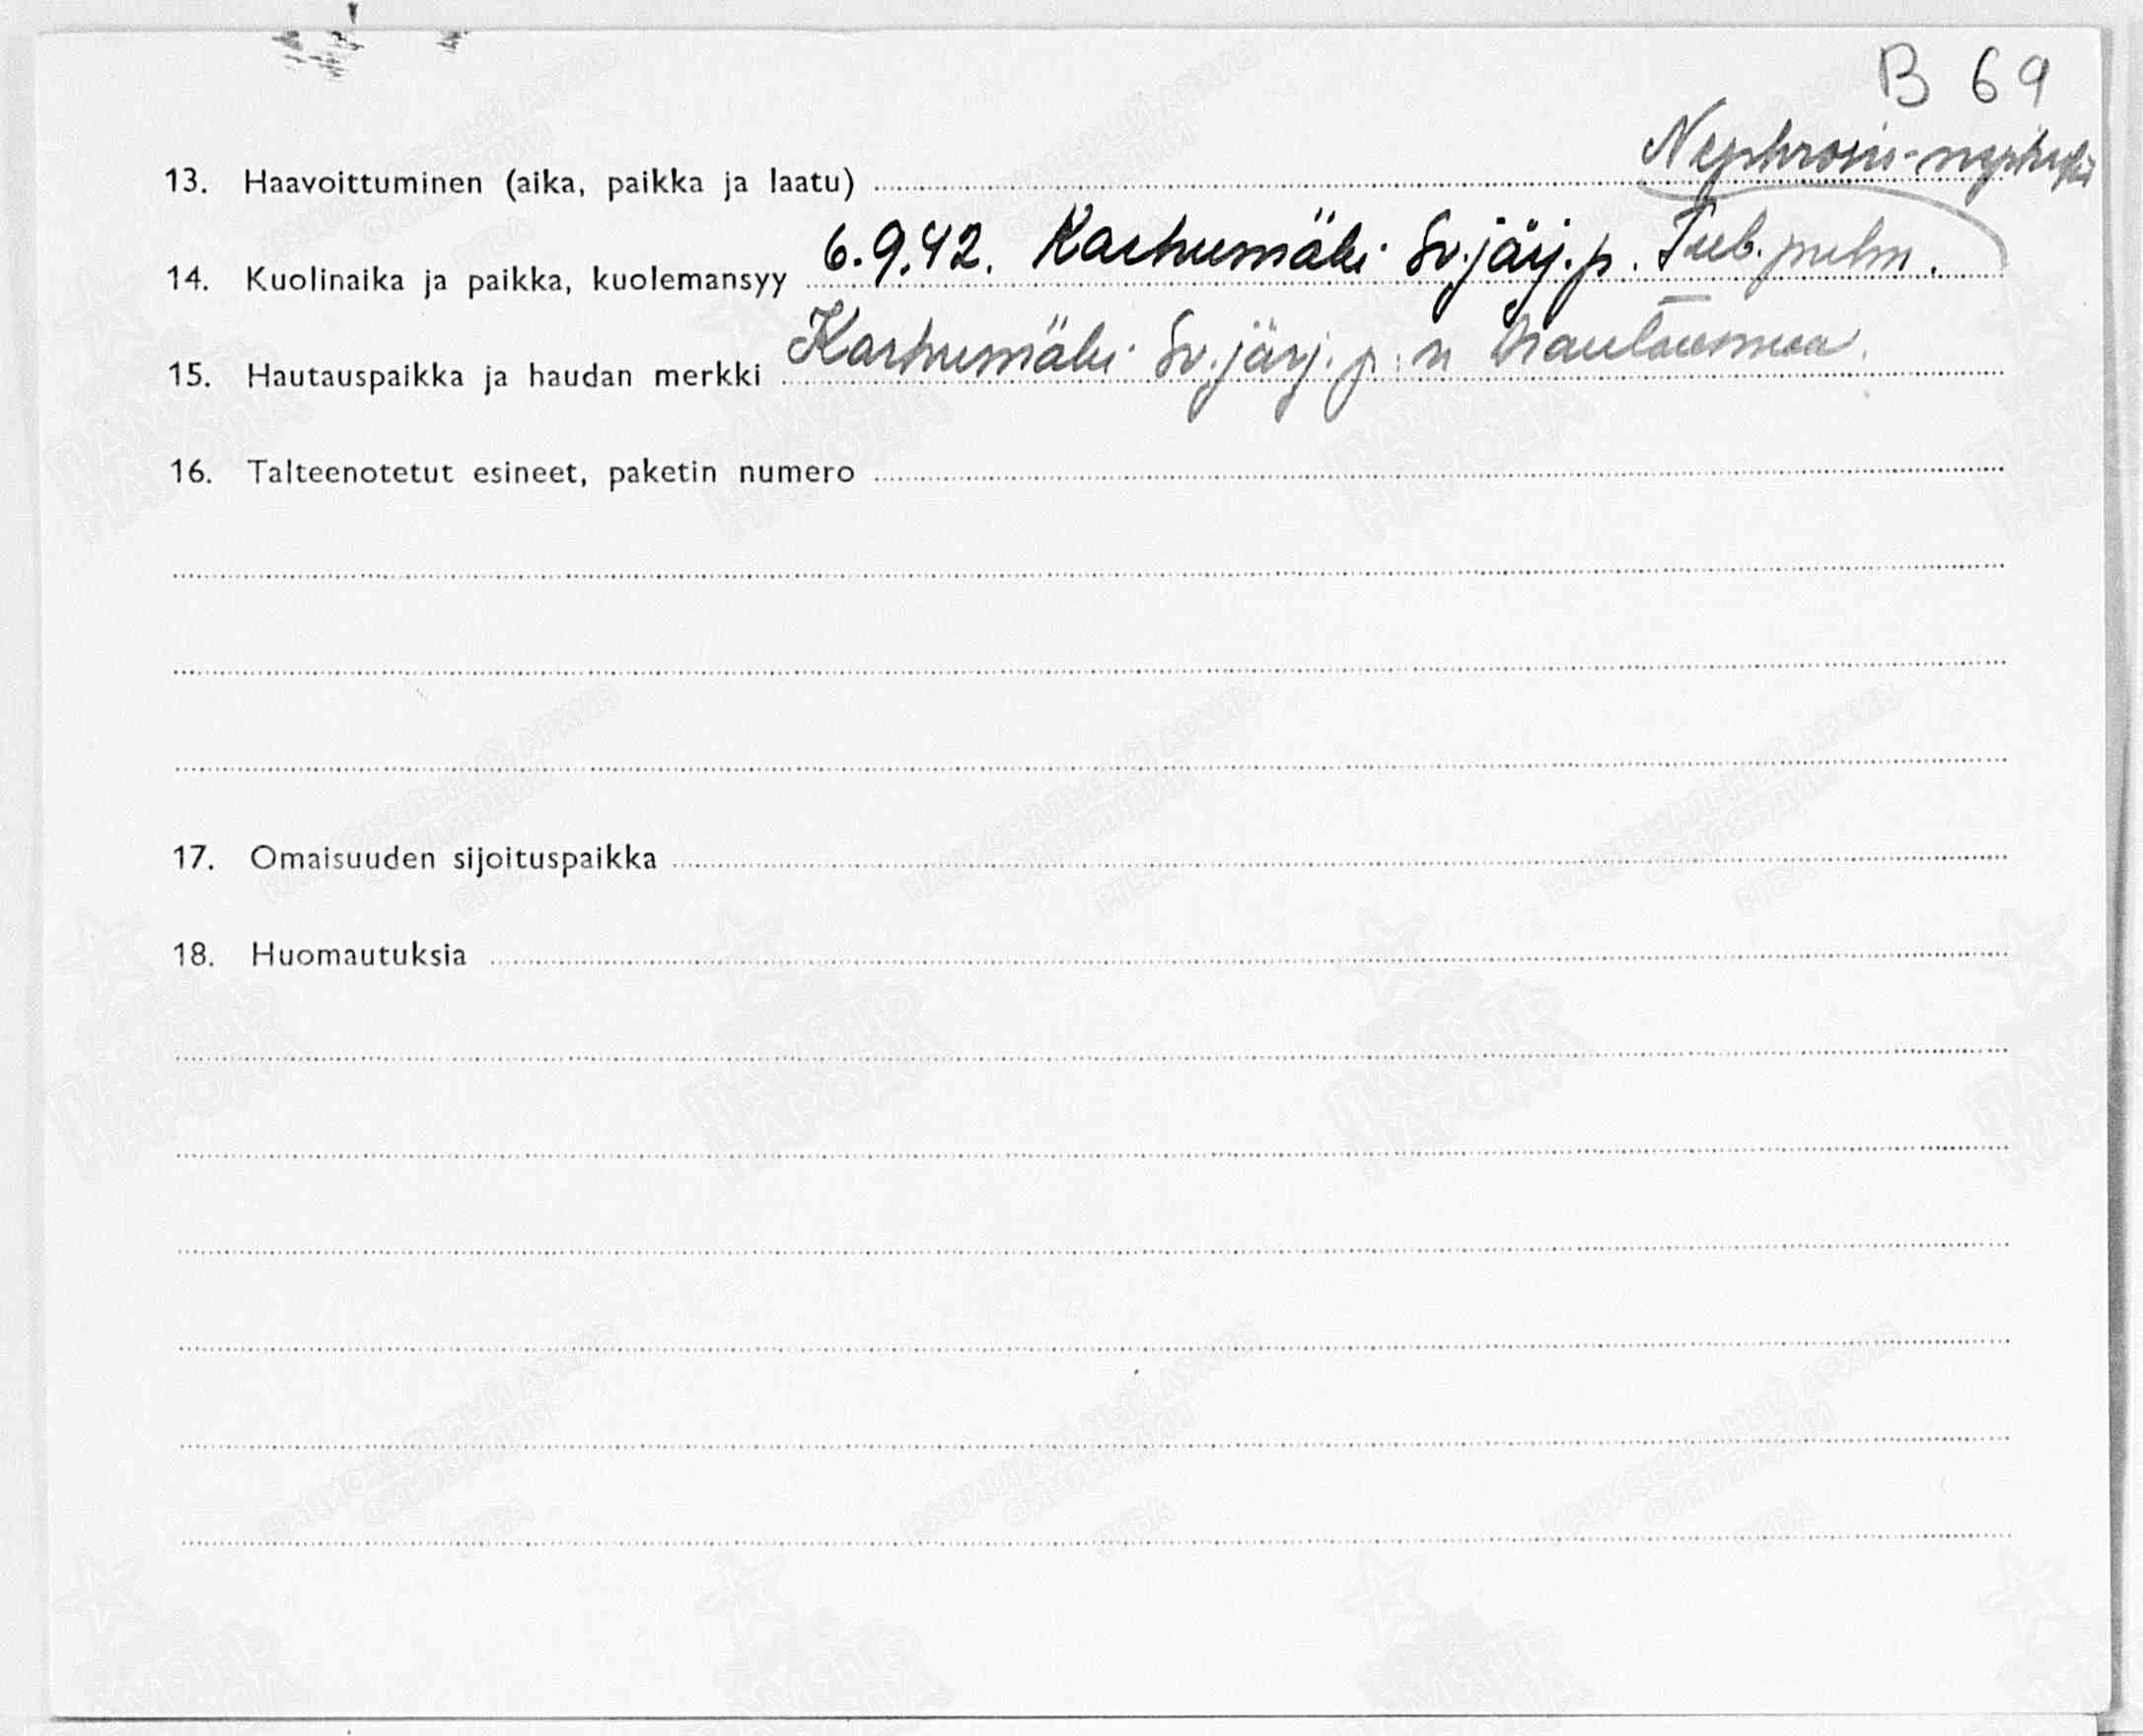 B 69
Nephrosis-nephritis
13. Haavoittuminen (aika, paikka ja laatu)
14. Kuolinaika ja paikka, kuolemansyy 6.9.42. Karhumäki Sv.järj.p. Tub. pulm.
15. Hautauspaikka ja haudan merkki Karhumäki Sv.järj.p:n hautausmaa.
16. Talteenotetut esineet, paketin numero
17. Omaisuuden sijoituspaikka
18. Huomautuksia